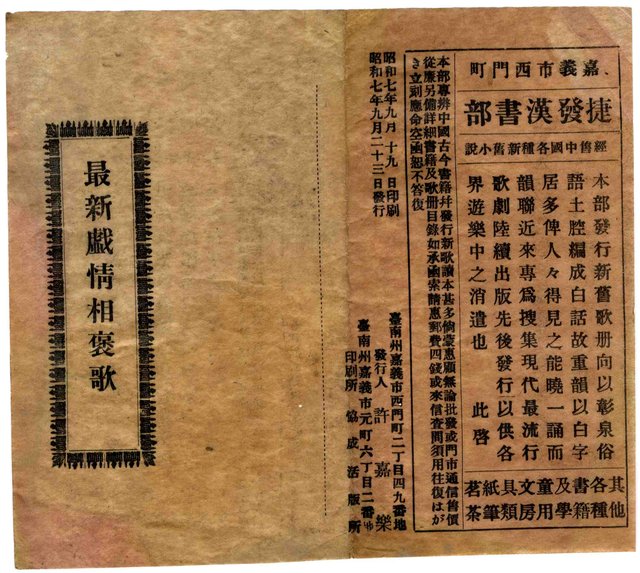 嘉義市西門町
捷發漢書部
經售中國各種新舊小說
本部發行新舊歌册向以彰泉俗
語土腔編成白話故重韻以白字
居多俾人々得見之能曉一誦而
韻聯近來專爲搜集現代最流行
歌劇陸續出版先後發行以供各
界遊樂中之消遣也　此啓
其他各種書籍及學童用文房具類紙筆茗茶
本部專辨中國古今書籍幷發行新歌讀本甚多倘蒙惠顧無論批發或門市通信售價
從廉另備詳細書籍及歌册目錄如承函索請惠郵費四錢或來信查問須用往復はが
き立刻應命空函恕不答復
昭和七年九月十九日印刷
昭和七年九月二十三日發行
臺南州嘉義市西門町二丁目四九番地
發行人　許嘉樂
臺南州嘉義市元町六丁目二番地
印刷所　協成活版所
最新戲情相褒歌